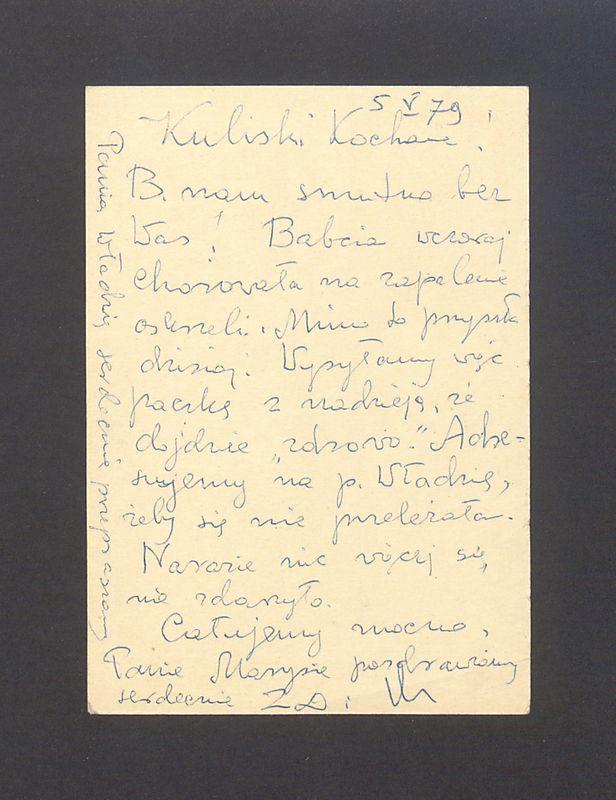 5 V 79
Kuliski Kochane!
B. nam smutno bez
Was! Babcia wczoraj
chorowała na zapalenie
oskrzeli. Mimo to przyszła
dzisiaj. Wysyłamy więc
paczkę z nadzieją, że
dojdzie "zdrowo." Adre-
sujemy na p. Władzię,
żeby się nie przeleżała.
Narazie nic więcej się
nie zdarzyło.
Całujemy mocno,
Panie Marysie pozdrawiamy
serdecznie ZD i
Panią Władzię serdecznie przepraszamy